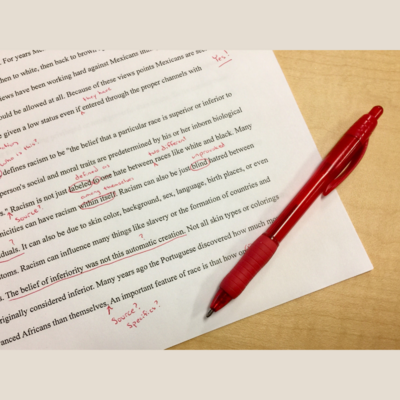 . For years M
then to white, then back to brown
views have been working hard against Mexicans
Yes?
ould be allowed at all. Because of these views points Mexicans are
they have
e given a low status even if entered through the proper channels with
who is this?
defines racism to be "the belief that a particular race is superior or inferior to
person's social and moral traits are predetermined by his or her inborn biological
defined as
two different
unprovoked
s." Racism is not just labeled to one hate between races like white and black. Many
Source?
among themselves
nicities can have racism within itself. Racism can also be just blind hatred between
duals. It can also be due to skin color, background, sex, language, birth places, or even
?
toms. Racism can influence many things like slavery or the formation of countries and
s. The belief of inferiority was not this automatic creation. Not all skin types or colorings
originally considered inferior. Many years ago the Portuguese discovered how much mo
anced Africans than themselves. An important feature of race is that how
Source?
Specifics?